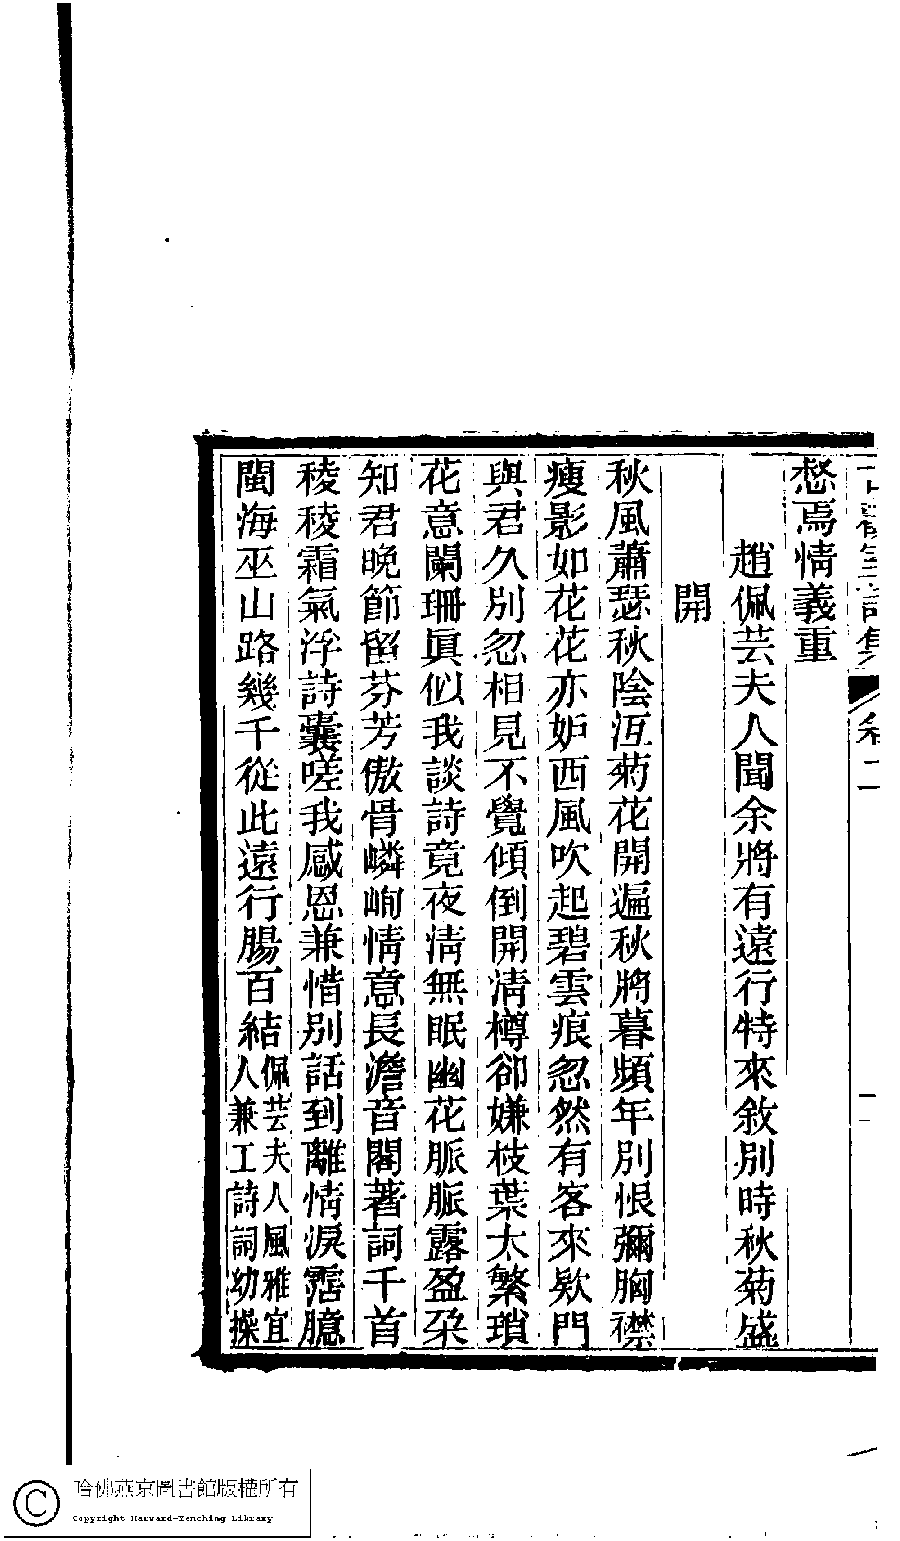 古歡室詩集 卷二
惄焉情義重
趙佩芸夫人聞余將有遠行特來敘別時秋菊盛
開
秋風蕭瑟秋陰沍菊花開遍秋將暮頻年別恨彌胸襟
瘦影如花花亦妒西風吹起碧雲痕忽然有客來欵門
與君久別忽相見不覺傾倒開清樽卻嫌枝葉太繁瑣
花意闌珊眞似我談詩竟夜淸無眠幽花脈脈露盈朶
知君晚節留芬芳傲骨嶙峋情意長澹音閣著詞千首
稜稜霜氣浮詩囊嗟我感恩兼惜別話到離情淚霑臆
閩海巫山路幾千從此遠行腸百結
佩芸夫人風雅宜
人兼工詩詞幼操
哈佛燕京圖書館版權所有
Copyright Harvard-Yenching Library